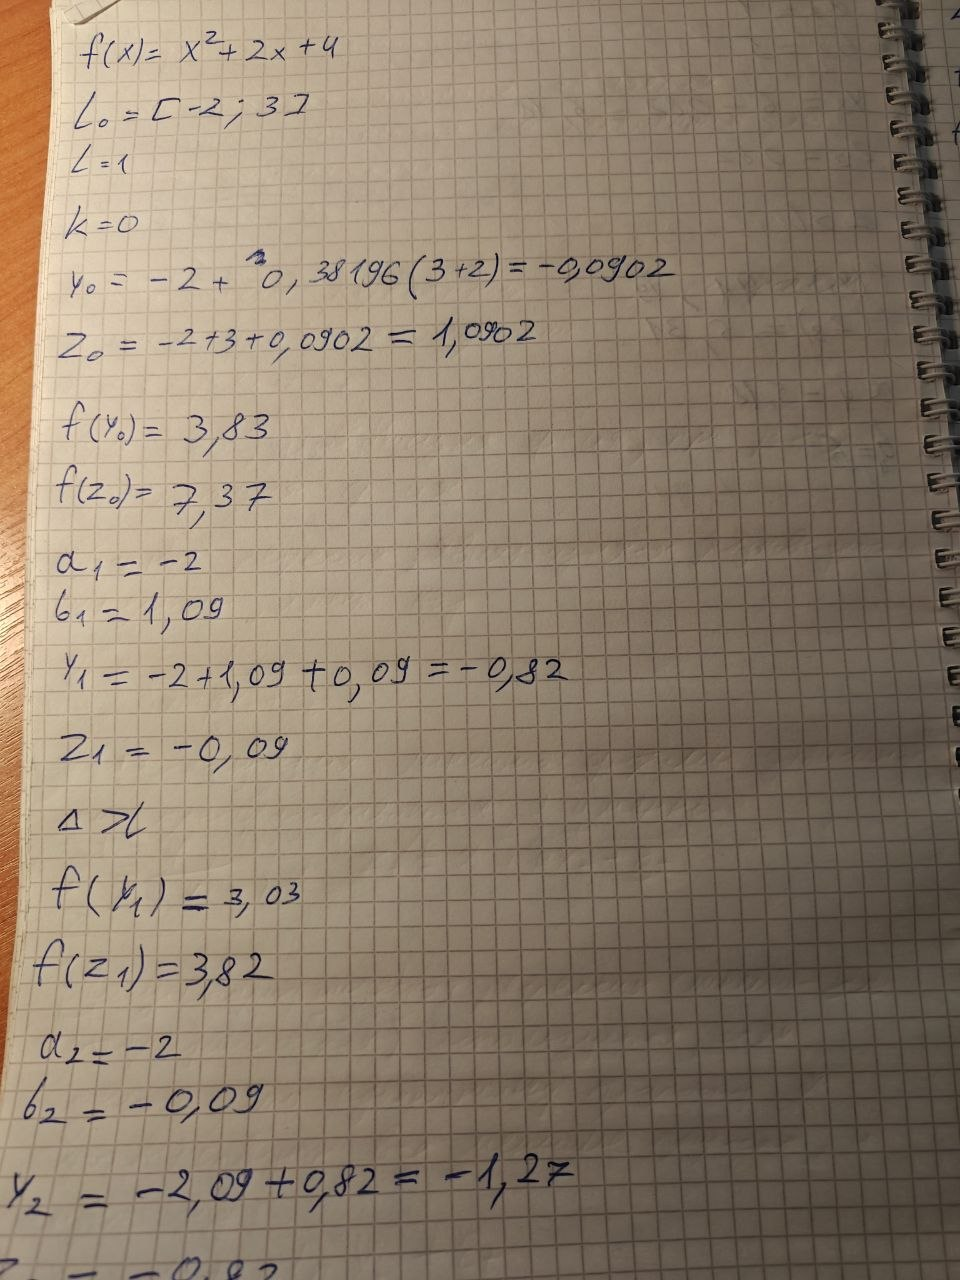 f(x)= x²+2x+4
L₀ = [-2; 3]
L=1
k=0
y₀ = -2 + 0,38196(3+2)=-0,0902
z₀ = -2+3+0,0902 = 1,0902
f(y₀)= 3,83
f(z₀)= 7,37
a₁ = -2
b₁ = 1,09
y₁ = -2+1,09+0,09=-0,82
z₁ = -0,09
Δ>L
f(y₁) = 3,03
f(z₁)=3,82
a₂=-2
b₂ = -0,09
y₂ = -2,09+0,82=-1,27
z₂ = -0,82